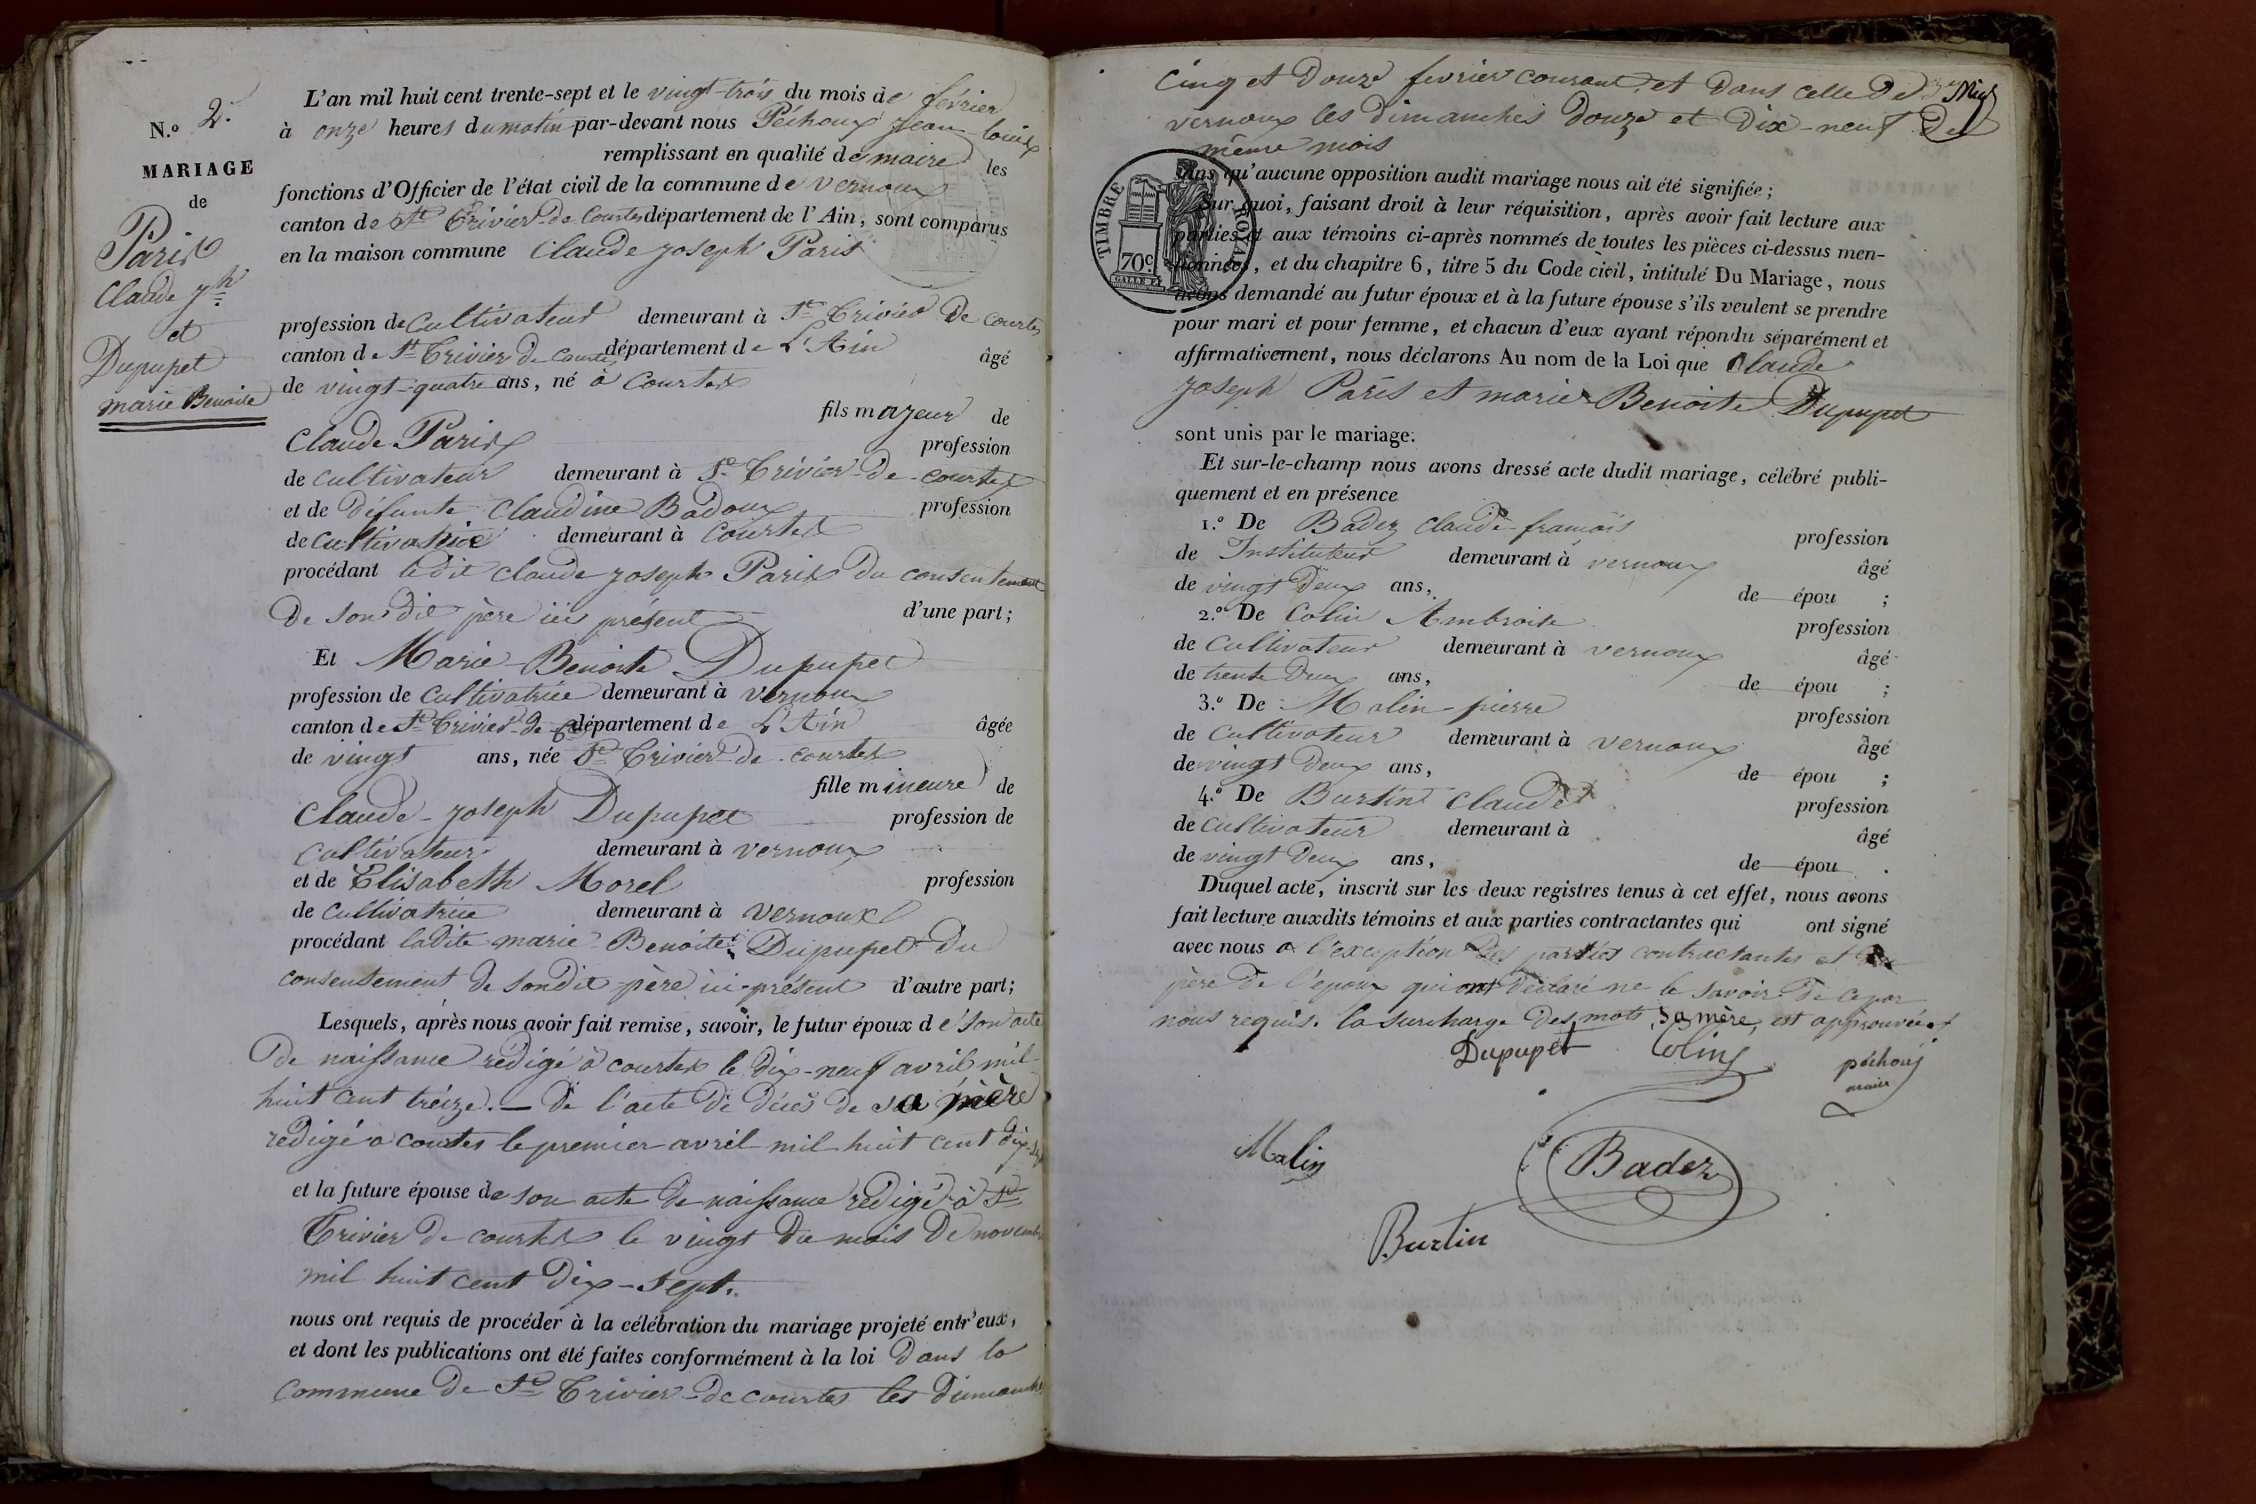 N.º 2.
MARIAGE
de
Paris
Claude Jph
et
Dupupet
marie Benoite
L'an mil huit cent trente-sept et le vingt-trois du mois de février
à onze heures du matin par-devant nous Péchoux Jean-louis
remplissant en qualité de maire les
fonctions d'Officier de l'état civil de la commune de vernoux
canton de St Trivier-de Courtes département de l'Ain, sont comparus
en la maison commune Claude joseph Paris
profession de Cultivateur demeurant à St Trivier De courtes
canton de St Trivier de Courtes département de L'Ain âgé
de vingt-quatre ans, né à Courtes
fils majeur de
Claude Paris profession
de cultivateur demeurant à St Trivier-de-courtes
et de défunte Claudine Badoux profession
de cultivatrice demeurant à Courtes
procédant ledit claude joseph Paris du consentement
de son dit père ici présent d'une part;
Et Marie-Benoite Dupupet
profession de cultivatrice demeurant à vernoux
canton de St Trivier-de-C département de L'Ain âgée
de vingt ans, née St Trivier-de-courtes
fille mineure de
Claude-joseph Dupupet profession de
cultivateur demeurant à vernoux
et de Elisabeth Morel profession
de cultivatrice demeurant à vernoux
procédant ladite marie Benoite Dupupet du
consentement de son dit père ici-présent d'autre part;
Lesquels, après nous avoir fait remise, savoir, le futur époux de son acte
de naissance rédigé à courtes le dix-neuf avril mil
huit cent treize. — De l'acte de décès de sa mère
rédigé a courtes le premier avril mil huit cent dix-sept
et la future épouse de son acte de naissance rédigé à St
Trivier de courtes le vingt du mois de novembre
mil huit cent dix-sept.
nous ont requis de procéder à la célébration du mariage projeté entr'eux,
et dont les publications ont été faites conformément à la loi dans la
commune de St Trivier-de courtes les dimanches
cinq et douze fevrier courant et dans celle de
vernoux les dimanches douze et dix-neuf du
même mois
TIMBRE ROYAL
70c.
sans qu'aucune opposition audit mariage nous ait été signifiée;
Sur quoi, faisant droit à leur réquisition, après avoir fait lecture aux
parties et aux témoins ci-après nommés de toutes les pièces ci-dessus men-
tionnées, et du chapitre 6, titre 5 du Code civil, intitulé Du Mariage, nous
avons demandé au futur époux et à la future épouse s'ils veulent se prendre
pour mari et pour femme, et chacun d'eux ayant répondu séparément et
affirmativement, nous déclarons Au nom de la Loi que Claude
joseph Paris et marie Benoite Dupupet
sont unis par le mariage.
Et sur-le-champ nous avons dressé acte dudit mariage, célébré publi-
quement et en présence
1.º De Badez claude-françois profession
de Instituteur demeurant à vernoux âgé
de vingt deux ans, de épou ;
2.º De Colin Ambroise profession
de cultivateur demeurant à vernoux âgé
de trente deux ans, de épou ;
3.º De Malin-pierre profession
de cultivateur demeurant à vernoux âgé
de vingt deux ans, de épou ;
4.º De Burtin claude profession
de cultivateur demeurant à âgé
de vingt deux ans, de épou .
Duquel acte, inscrit sur les deux registres tenus à cet effet, nous avons
fait lecture auxdits témoins et aux parties contractantes qui ont signé
avec nous a l'exception des parties contractantes et du
père de l'époux qui ont déclaré ne le savoir de ce par
nous requis. la surcharge des mots, sa mère, est approuvée.
Dupupet Colin péchoux
maire
Malin Badez
Burtin